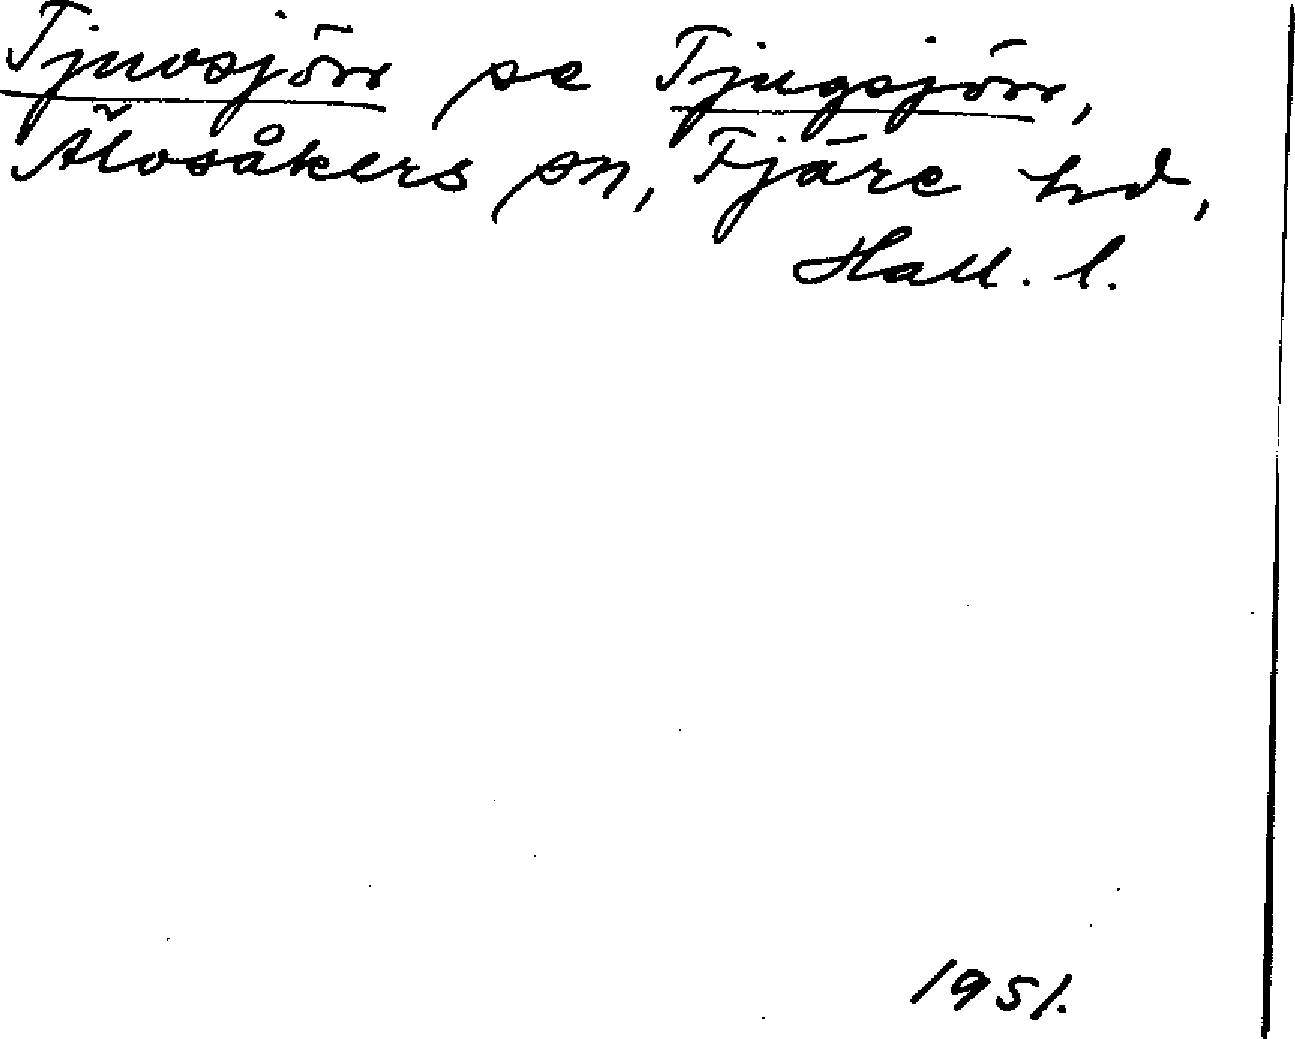 Tjuvsjörr se Tjugsjörr,
Älvsåkers sn, Fjäre hd,
Hall. l.
1951.